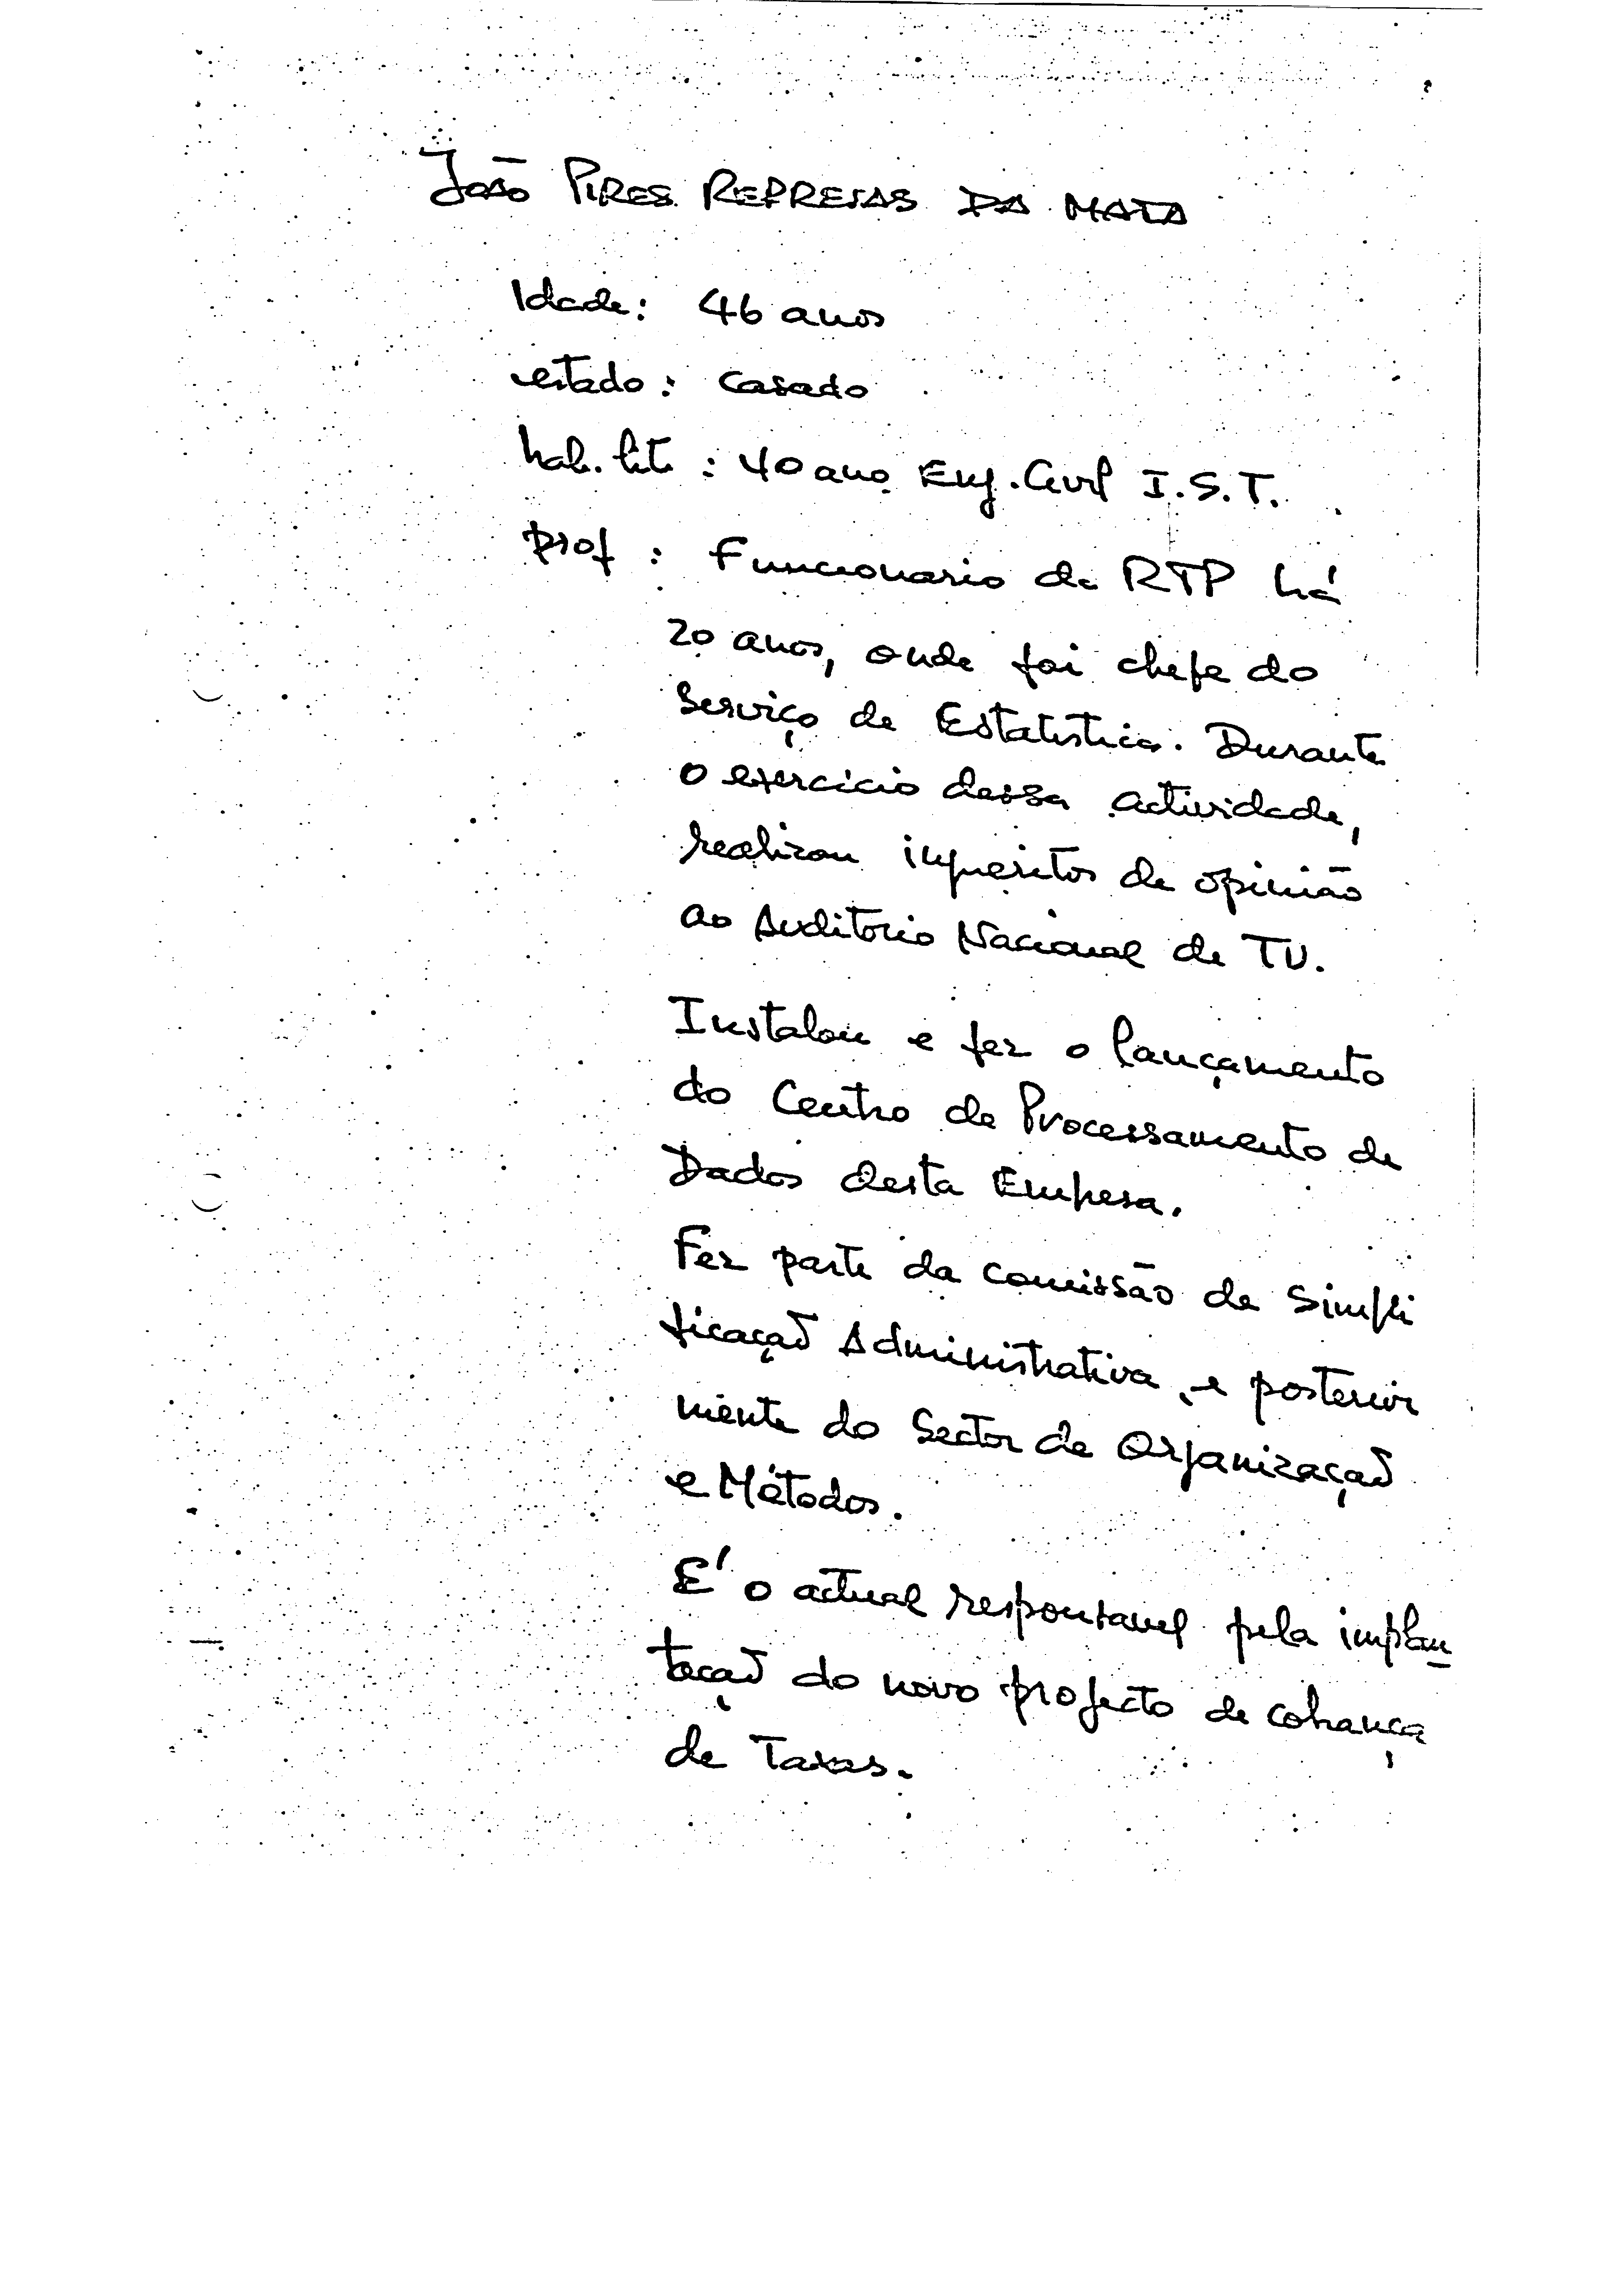 João PIRES REPRESAS DA MATA
Idade: 46 anos
estado: casado
hab. lit: 4º ano Eng. Civil I.S.T.
prof: Funcionario da RTP há
20 anos, onde foi chefe do
Serviço de Estatistica. Durante
o exercicio dessa actividade,
realizou inqueritos de opinião
ao Auditorio Nacional de TV.
Instalou e fez o lançamento
do Centro de Processamento de
Dados desta Empresa.
Fez parte da comissão de Simpli
ficação Administrativa, e posterior
mente do Sector de Organização
e Métodos.
E' o actual responsavel pela implan
tação do novo projecto de cobrança
de Taxas.